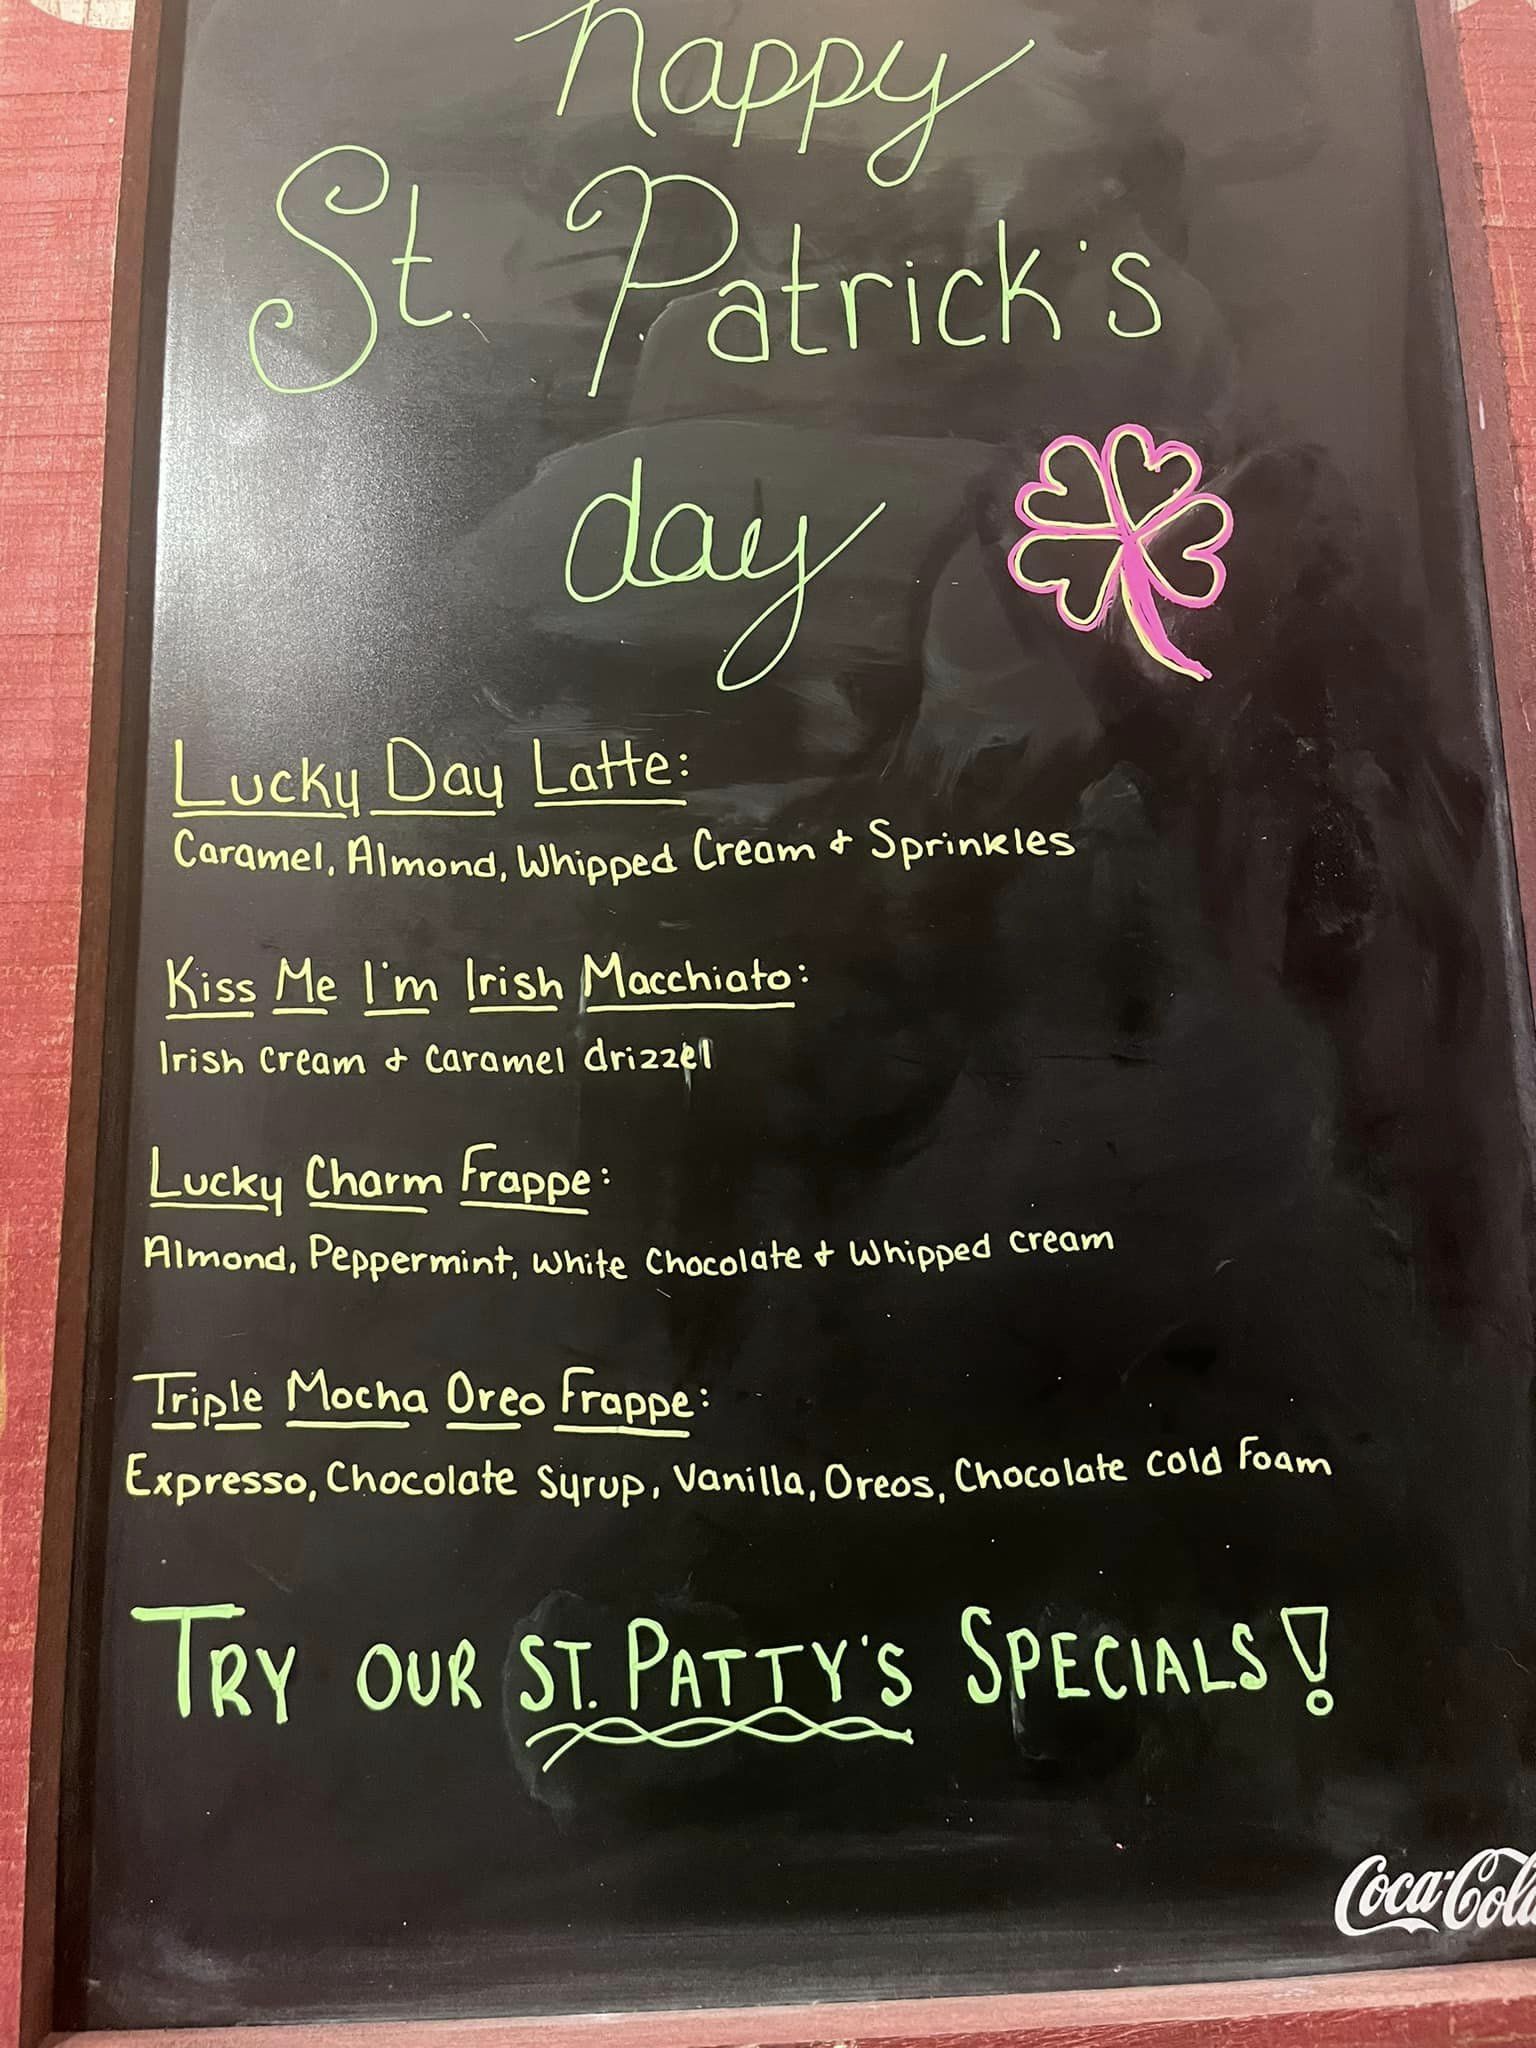 happy
St. Patrick's
day
Lucky Day Latte:
Caramel, Almond, Whipped Cream & Sprinkles
Kiss Me I'm Irish Macchiato:
Irish Cream & Caramel drizzel
Lucky Charm Frappe:
Almond, Peppermint, White Chocolate & Whipped Cream
Triple Mocha Oreo Frappe:
Expresso, Chocolate Syrup, Vanilla, Oreos, Chocolate Cold Foam
TRY OUR ST. PATTY'S SPECIALS!
Coca-Cola